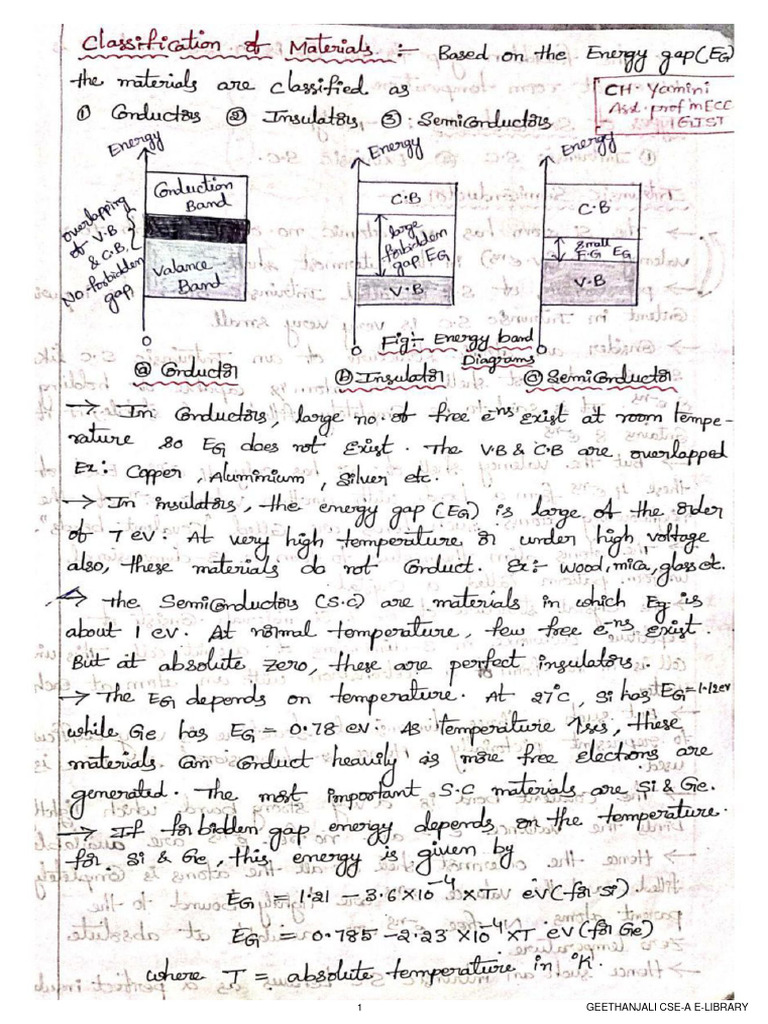 Classification of Materials :- Based on the Energy gap (EG)
the materials are classified as
CH. Yamini
Asst. prof in ECE
GIST
① Conductors ② Insulators ③ SemiConductors
Energy
Conduction
Band
overlapping
of V.B
& C.B
No. forbidden
gap
Valance
Band
0
ⓐ Conductor
Energy
C.B
large
forbidden
gap EG
V.B
0
ⓑ Insulator
Energy
C.B
small
F.G EG
V.B
0
ⓒ SemiConductor
Fig:- Energy band
Diagrams
→ In Conductors, large no. of free e-ns exist at room tempe-
rature so EG does not Exist. The V.B & C.B are overlapped
Ex: Copper, Aluminium, Silver etc.
→ In insulators, the energy gap (EG) is large of the order
of 7 eV. At very high temperature or under high voltage
also, these materials do not Conduct. Ex:- wood, mica, glass etc.
→ the SemiConductors (S.C) are materials in which Eg is
about 1 ev. At normal temperature, few free e-ns exist.
But at absolute zero, these are perfect insulators.
→ The EG depends on temperature. At 27°C, Si has EG = 1.12ev
while Ge has EG = 0.78 ev. As temperature ↑ses, these
materials can conduct heavily as more free electrons are
generated. The most important S.C materials are Si & Ge.
→ If forbidden gap energy depends on the temperature.
for Si & Ge, this energy is given by
EG = 1.21 - 3.6 × 10⁻⁴ × T eV (for Si)
EG = 0.785 - 2.23 × 10⁻⁴ × T eV (for Ge)
where T = absolute temperature in °K.
1
GEETHANJALI CSE-A E-LIBRARY